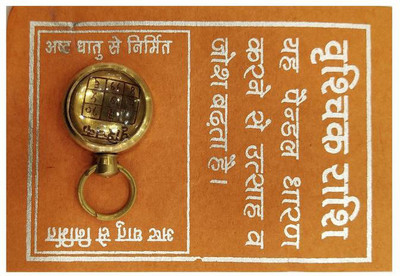 अष्ट धातु से निर्मित
वृश्चिक राशि
यह पैन्डल धारण
करने से उत्साह व
जोश बढ़ता है।
अष्ट धातु से निर्मित